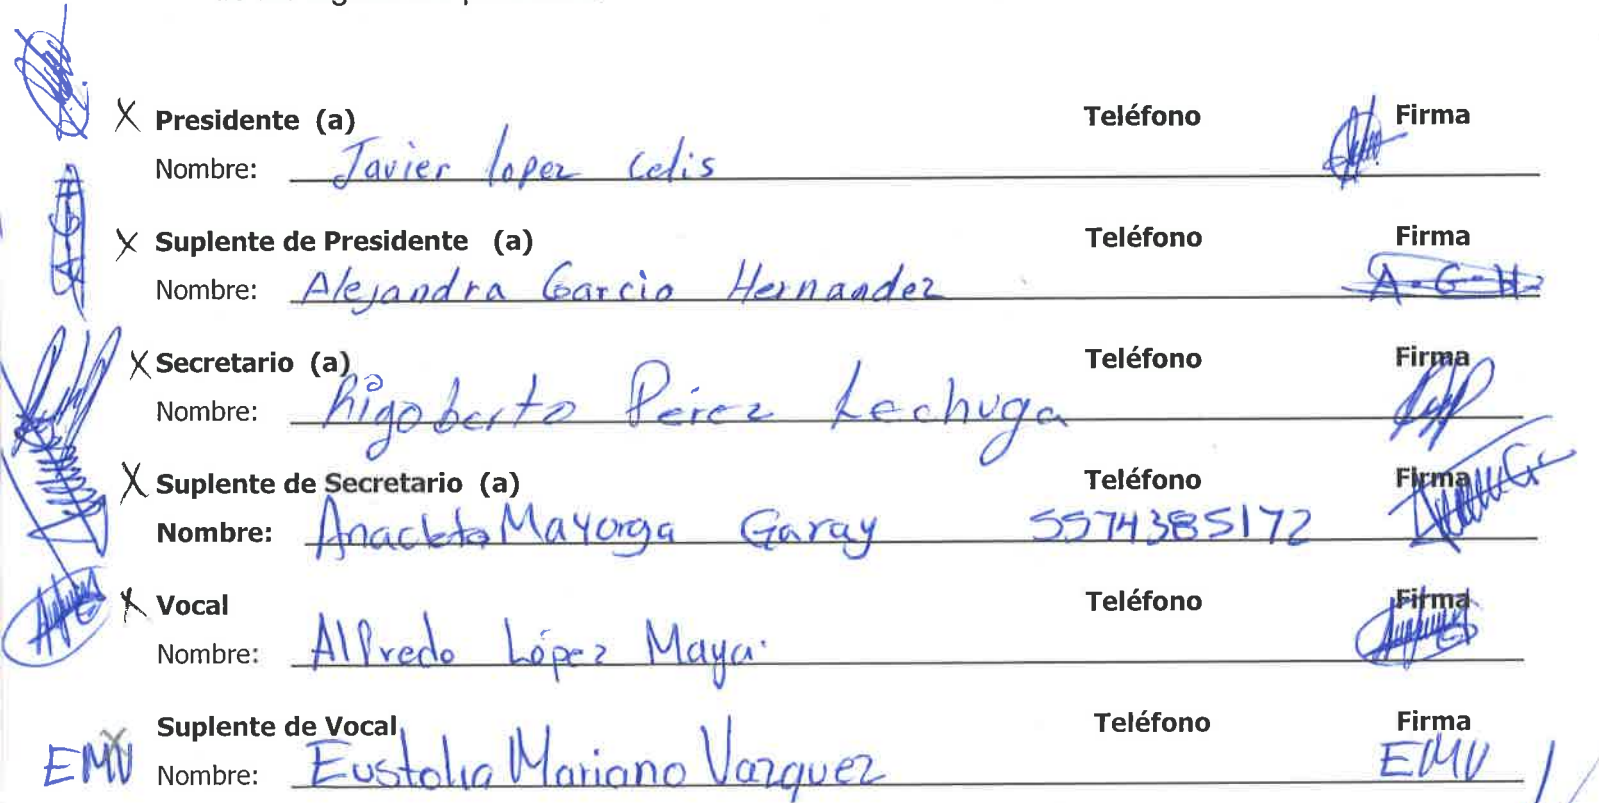 X Presidente (a) Teléfono Firma
Nombre: Javier lopez Celis
X Suplente de Presidente (a) Teléfono Firma
Nombre: Alejandra Garcia Hernandez A-G-H
X Secretario (a) Teléfono Firma
Nombre: Rigoberto Pérez Lechuga
X Suplente de Secretario (a) Teléfono Firma
Nombre: Anacleto Mayorga Garay 5574385172
X Vocal Teléfono Firma
Nombre: Alfredo López Maya
Suplente de Vocal Teléfono Firma
EMV X Nombre: Eustolia Mariano Vazquez EMV